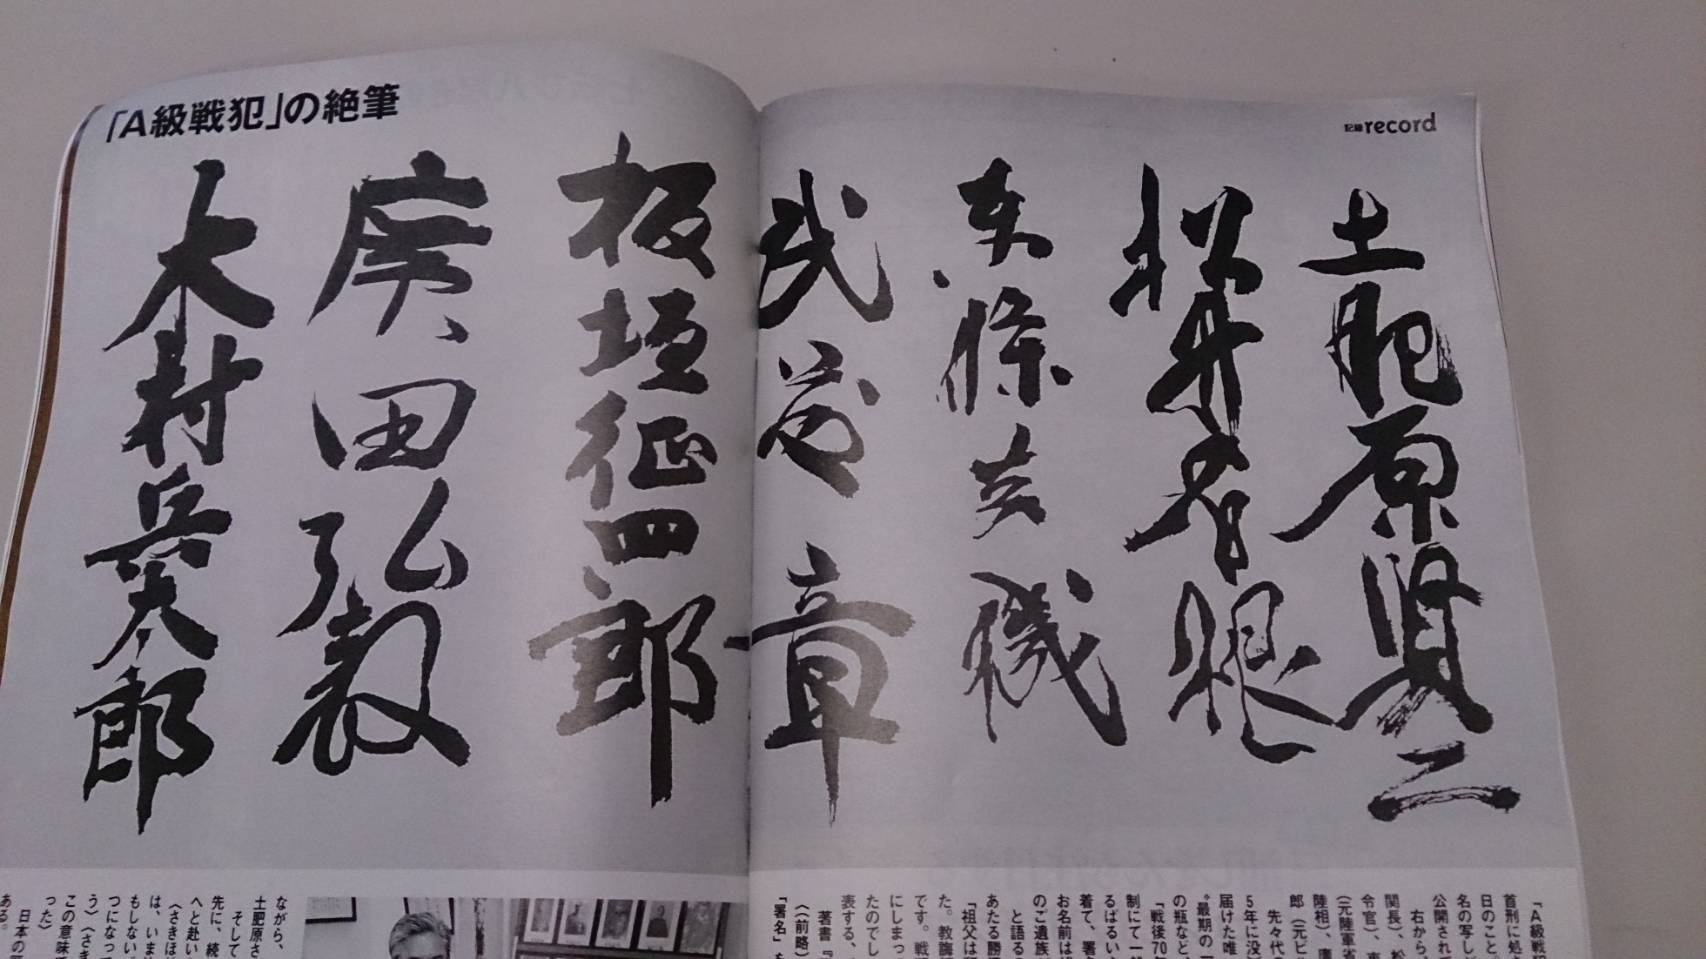 「A級戦犯」の絶筆
記録record
土肥原賢二
松井石根
東條英機
武藤章
板垣征四郎
廣田弘毅
木村兵太郎
「A級戦
首刑に処
日のこと。
名の写し
公開され
右から、
関長)、松
令官)、東
(元陸軍省
陸相)、廣
郎(元ビ
先々代の
5年に没
届けた唯
“最期の一
の瓶など、
「戦後70年
制にて一
るばるい
着て、署
お名前は
のご遺族
と語る
あたる勝
「祖父は
た。教誨
です。戦
にしまっ
たのでし
表する、
著書『
〈(前略)
「署名」を
ながら、
土肥原さ
そして
先に、続
へと赴い
〈さきほ
は、いま
もしない。
つになっ
う〉〈さき
この意味
った〉
日本の
ある。